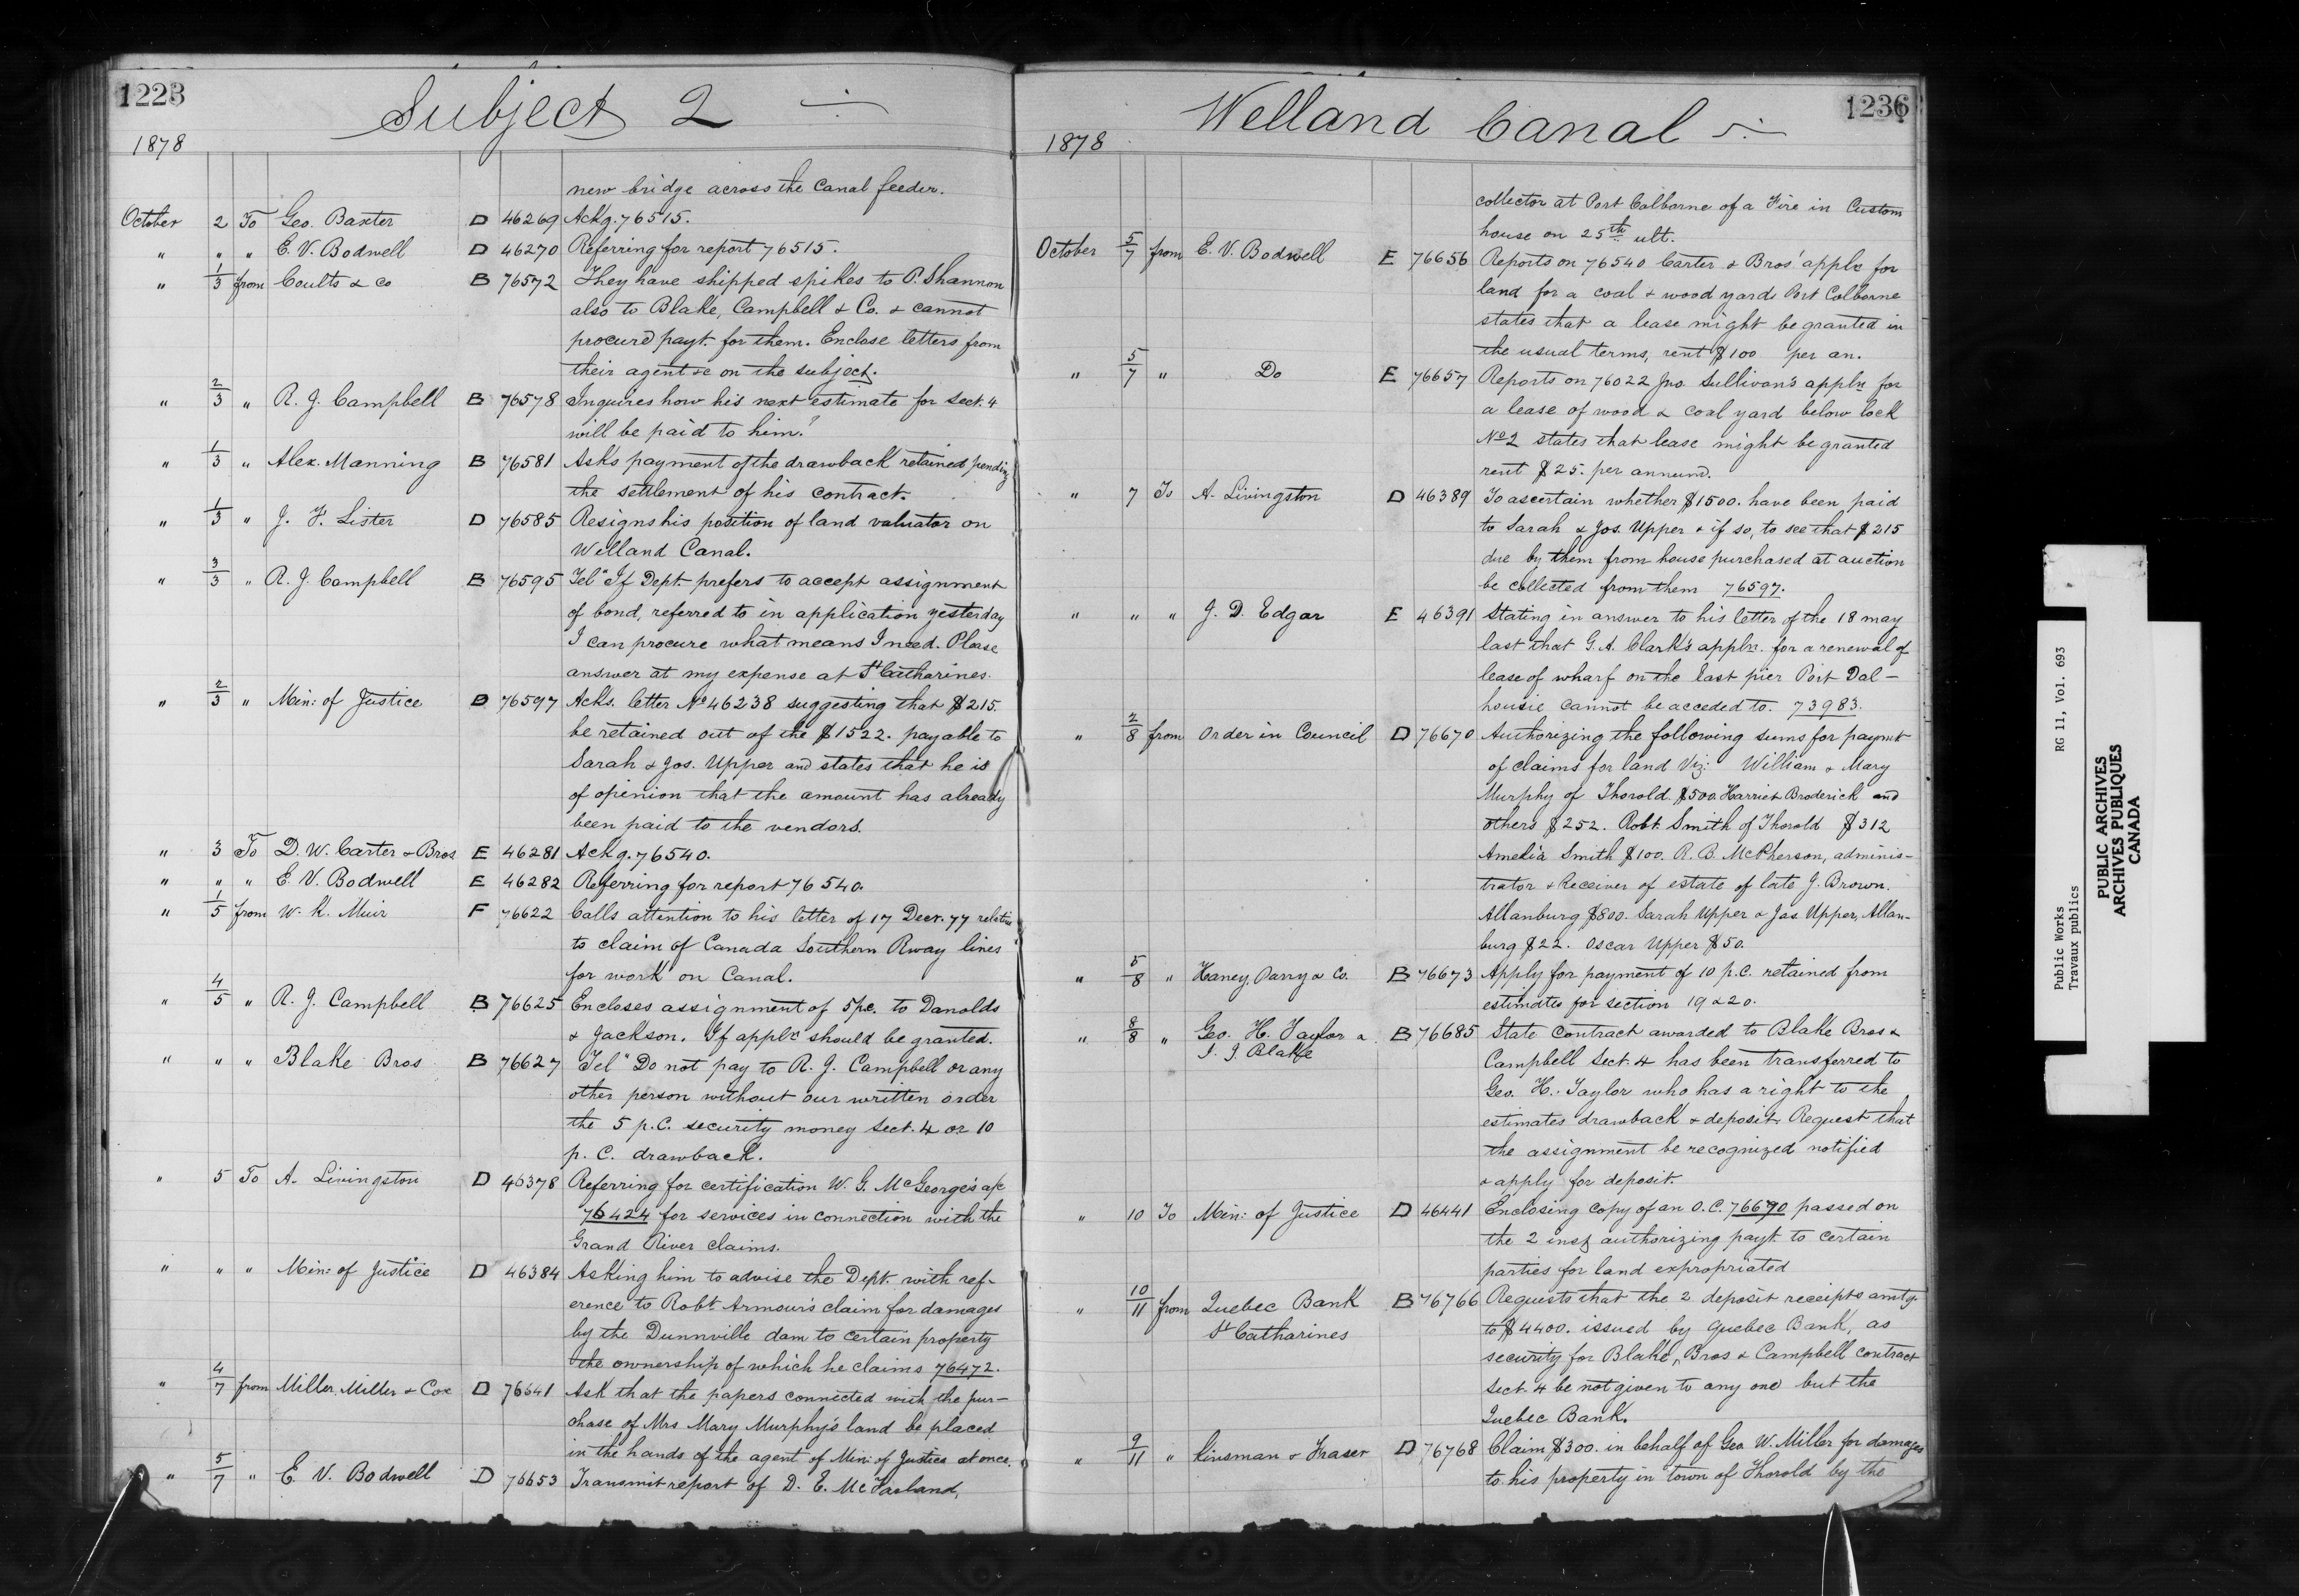 1223
Subject 2
1878
new bridge across the Canal feeder.
October 2 To Geo. Baxter D 46269 Ackg. 76515.
" " " E. V. Bodwell D 46270 Referring for report 76515.
" 1/3 from Coults & Co B 76572 They have shipped spikes to P. Shannon
also to Blake, Campbell & Co. & cannot
procure payt. for them. Enclose letters from
their agent &c on the subject.
" 2/3 " R. J. Campbell B 76578 Inquires how his next estimate for Sect. 4
will be paid to him?
" 1/3 " Alex. Manning B 76581 Asks payment of the drawback retained pending
the settlement of his contract.
" 1/3 " J. F. Lister D 76585 Resigns his position of land valuator on
Welland Canal.
" 3/3 " R. J. Campbell B 76595 Tel "If Dept. prefers to accept assignment
of bond, referred to in application yesterday
I can procure what means I need. Please
answer at my expense at St Catharines.
" 2/3 " Min: of Justice D 76597 Acks. letter No 46238 suggesting that $215.
be retained out of the $1522. payable to
Sarah & Jos. Upper and states that he is
of opinion that the amount has already
been paid to the vendors.
" 3 To D. W. Carter & Bros E 46281 Ackg. 76540.
" " " E. V. Bodwell E 46282 Referring for report 76540.
" 1/5 from W. K. Muir F 76622 Calls attention to his letter of 17 Decr. 77 relative
to claim of Canada Southern Rway lines
for work on Canal.
" 4/5 " R. J. Campbell B 76625 Encloses assignment of 5 p.c. to Danolds
& Jackson. If appln should be granted.
" " " Blake Bros B 76627 Tel "Do not pay to R. J. Campbell or any
other person without our written order
the 5 p.C. security money Sect. 4 or 10
p. C. drawback.
" 5 To A. Livingston D 46378 Referring for certification W. G. McGeorge's a/c
76424 for services in connection with the
Grand River claims.
" " " Min: of Justice D 46384 Asking him to advise the Dept. with ref-
erence to Robt. Armour's claim for damages
by the Dunnville dam to certain property
the ownership of which he claims 76472.
" 4/7 from Miller, Miller & Cox D 76641 Ask that the papers connected with the pur-
chase of Mrs Mary Murphy's land be placed
in the hands of the agent of Min: of Justice at once.
" 5/7 " E. V. Bodwell D 76653 Transmit report of D. E. McFarland,
1236
Welland Canal
1878
collector at Port Colborne of a Fire in Custom
house on 25th ult.
October 5/7 from E. V. Bodwell E 76656 Reports on 76540 Carter & Bros' appln for
land for a coal & wood yard Port Colborne
states that a lease might be granted in
the usual terms, rent $100 per an.
" 5/7 " Do E 76657 Reports on 76022 Jno. Sullivan's appln for
a lease of wood & coal yard below lock
No 2 states that lease might be granted
rent $25. per annum.
" 7 To A. Livingston D 46389 To ascertain whether $1500. have been paid
to Sarah & Jos. Upper & if so, to see that $215
due by them from house purchased at auction
be collected from them 76597.
" " " J. D. Edgar E 46391 Stating in answer to his letter of the 18 may
last that G. A. Clark's appln. for a renewal of
lease of wharf on the last pier Port Dal-
housie cannot be acceded to. 73983.
" 2/8 from Order in Council D 76670 Authorizing the following sums for paymt
of claims for land Viz: William & Mary
Murphy of Thorold $500. Harriet Broderick and
others $252. Robt. Smith of Thorold $312
Amelia Smith $100. R. B. McPherson, adminis-
trator & Receiver of estate of late J. Brown.
Allanburg $800. Sarah Upper & Jas. Upper, Allan-
burg $22. Oscar Upper $50.
" 5/8 " Haney, Parry & Co. B 76673 Apply for payment of 10 p.c. retained from
estimates for section 19 & 20.
" 8/8 " Geo. H. Taylor & B 76685 State Contract awarded to Blake Bros &
J. J. Blake Campbell Sect. 4 has been transferred to
Geo. H. Taylor who has a right to the
estimates drawback & deposit. Request that
the assignment be recognized notified
& apply for deposit.
" 10 To Min: of Justice D 46441 Enclosing copy of an O.C. 76670 passed on
the 2 inst authorizing payt. to certain
parties for land expropriated
" 10/11 from Quebec Bank B 76766 Requests that the 2 deposit receipts amtg
St Catharines to $4400. issued by Quebec Bank, as
security for Blake, Bros & Campbell contract
Sect. 4 be not given to any one but the
Quebec Bank.
" 9/11 " Kinsman & Fraser D 76768 Claim $300. in behalf of Geo W. Miller for damages
to his property in town of Thorold by the
Public Works RG 11, Vol. 693
Travaux publics
PUBLIC ARCHIVES
ARCHIVES PUBLIQUES
CANADA